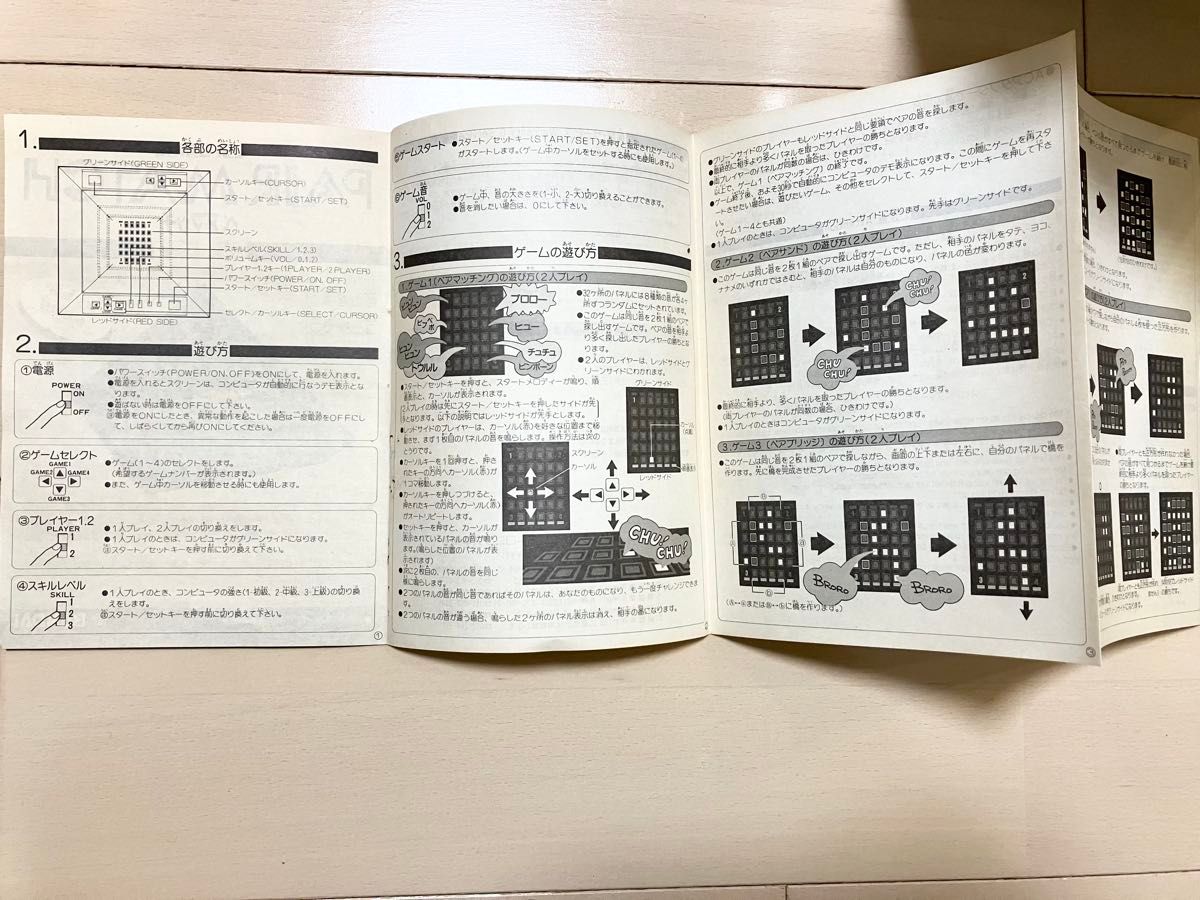 1.
各部の名称
グリーンサイド(GREEN SIDE)
カーソルキー(CURSOR)
スタート/セットキー(START/SET)
スクリーン
スキルレベル(SKILL/1.2.3)
ボリュームキー(VOL/0.1.2)
プレイヤー1.2キー(1PLAYER/2PLAYER)
パワースイッチ(POWER/ON. OFF)
スタート/セットキー(START/SET)
セレクト/カーソルキー(SELECT/CURSOR)
レッドサイド(RED SIDE)
2.
遊び方
①電源
POWER
ON
OFF
●パワースイッチ(POWER/ON. OFF)をONにして、電源を入れます。
●電源を入れるとスクリーンは、コンピュータが自動的に行なうデモ表示とな
ります。
●遊ばない時は電源をOFFにして下さい。
電源をONしたとき、異常な動作を起こした場合は一度電源をOFFにし
て、しばらくしてから再びONにしてください。
②ゲームセレクト
GAME1
GAME2 ▲ GAME4
◀ ▶
▼
GAME3
●ゲーム(1〜4)のセレクトをします。
(希望するゲームナンバーが表示されます。)
●また、ゲーム中カーソルを移動させる時にも使用します。
③プレイヤー1.2
PLAYER
1
2
●1人プレイ、2人プレイの切り換えをします。
●1人プレイのときは、コンピュータがグリーンサイドになります。
スタート/セットキーを押す前に切り換えて下さい。
④スキルレベル
SKILL
1
2
3
●1人プレイのとき、コンピュータの強さ(1-初級、2-中級、3-上級)の切り換
えをします。
スタート/セットキーを押す前に切り換えて下さい。
①
ゲームスタート
●スタート/セットキー(START/SET)を押すと指定されたゲーム
がスタートします。(ゲーム中カーソルをセットする時にも使用します。)
ゲーム音
VOL
0
1
2
●ゲーム中、音の大きさを(1-小、2-大)切り換えることができます。
●音を消したい場合は、0にして下さい。
3.
ゲームの遊び方
1.ゲーム1(ペアマッチング)の遊び方(2人プレイ)
ブロロー
ピプペポ
ヒュー
ヒュンヒュン
チュチュ
トウルル
ピンポーン
●32ヶ所のパネルには8種類の音が各4ヶ
所ずつランダムにセットされています。
●このゲームは同じ音を2枚1組のペアで
探し出すゲームです。ペアの音を相手よ
り多く探し出したプレイヤーの勝ちとな
ります。
●2人のプレイヤーは、レッドサイドとグ
リーンサイドにわかれます。
●スタート/セットキーを押すと、スタートメロディーが鳴り、順
番表示と、カーソルが表示されます。
(2人プレイの時は先にスタート/セットキーを押したサイドが先
手となります。以下の説明ではレッドサイドが先手とします。)
●レッドサイドのプレイヤーは、カーソル(赤)を好きな位置まで移
動させ、まず1枚目のパネルの音を鳴らします。操作方法は次の
とうりです。
●カーソルキーを1回押すと、押さ
れたキーの方向へカーソル(赤)が
1コマ移動します。
●カーソルキーを押しつづけると、
押されたキーの方向へカーソル(赤)
がオートリピートします。
●セットキーを押すと、カーソルが
表示されているパネルの音が鳴り
ます。(鳴らした位置のパネルが表
示されます)
●次に2枚目の、パネルの音を同じ
様に鳴らします。
●2つのパネルの音が同じ音であればそのパネルは、あなたのものになり、もう一度チャレンジできま
●2つのパネルの音が違う場合、鳴らした2ケ所のパネル表示は消え、相手の番になります。
グリーンサイド
カーソル
レッドサイド
スクリーン
カーソル
CHU!
CHU!
●グリーンサイドのプレイヤーもレッドサイドと同じ要領でペアの音を探します。
●最終的に相手より多くパネルを取ったプレイヤーの勝ちとなります。
●両プレイヤーのパネルが同数の場合は、ひきわけです。
以上で、ゲーム1(ペアマッチング)の終了です。
●ゲーム終了後、およそ30秒で自動的にコンピュータのデモ表示になります。この間にゲームを再スタ
ートさせたい場合は、遊びたいゲーム、その他をセレクトして、スタート/セットキーを押して下さ
い。
(ゲーム1〜4とも共通)
●1人プレイのときは、コンピュータがグリーンサイドになります。先手はグリーンサイドです。
2.ゲーム2(ペアサンド)の遊び方(2人プレイ)
●このゲームは同じ音を2枚1組のペアで探し出すゲームです。ただし、相手のパネルをタテ、ヨコ、
ナナメのいずれかではさむと、相手のパネルは自分のものになり、パネルの色が変わります。
CHU! CHU!
CHU! CHU!
●最終的に相手より、多くパネルを取ったプレイヤーの勝ちとなります。
(両プレイヤーのパネルが同数の場合、ひきわけです。)
●1人プレイのときはコンピュータがグリーンサイドになります。
3.ゲーム3(ペアブリッジ)の遊び方(2人プレイ)
●このゲームは同じ音を2枚1組のペアで探しながら、画面の上下または左右に、自分のパネルで橋を
作ります。先に橋を完成させたプレイヤーの勝ちとなります。
BRORO
BRORO
に橋を作ります。)
③